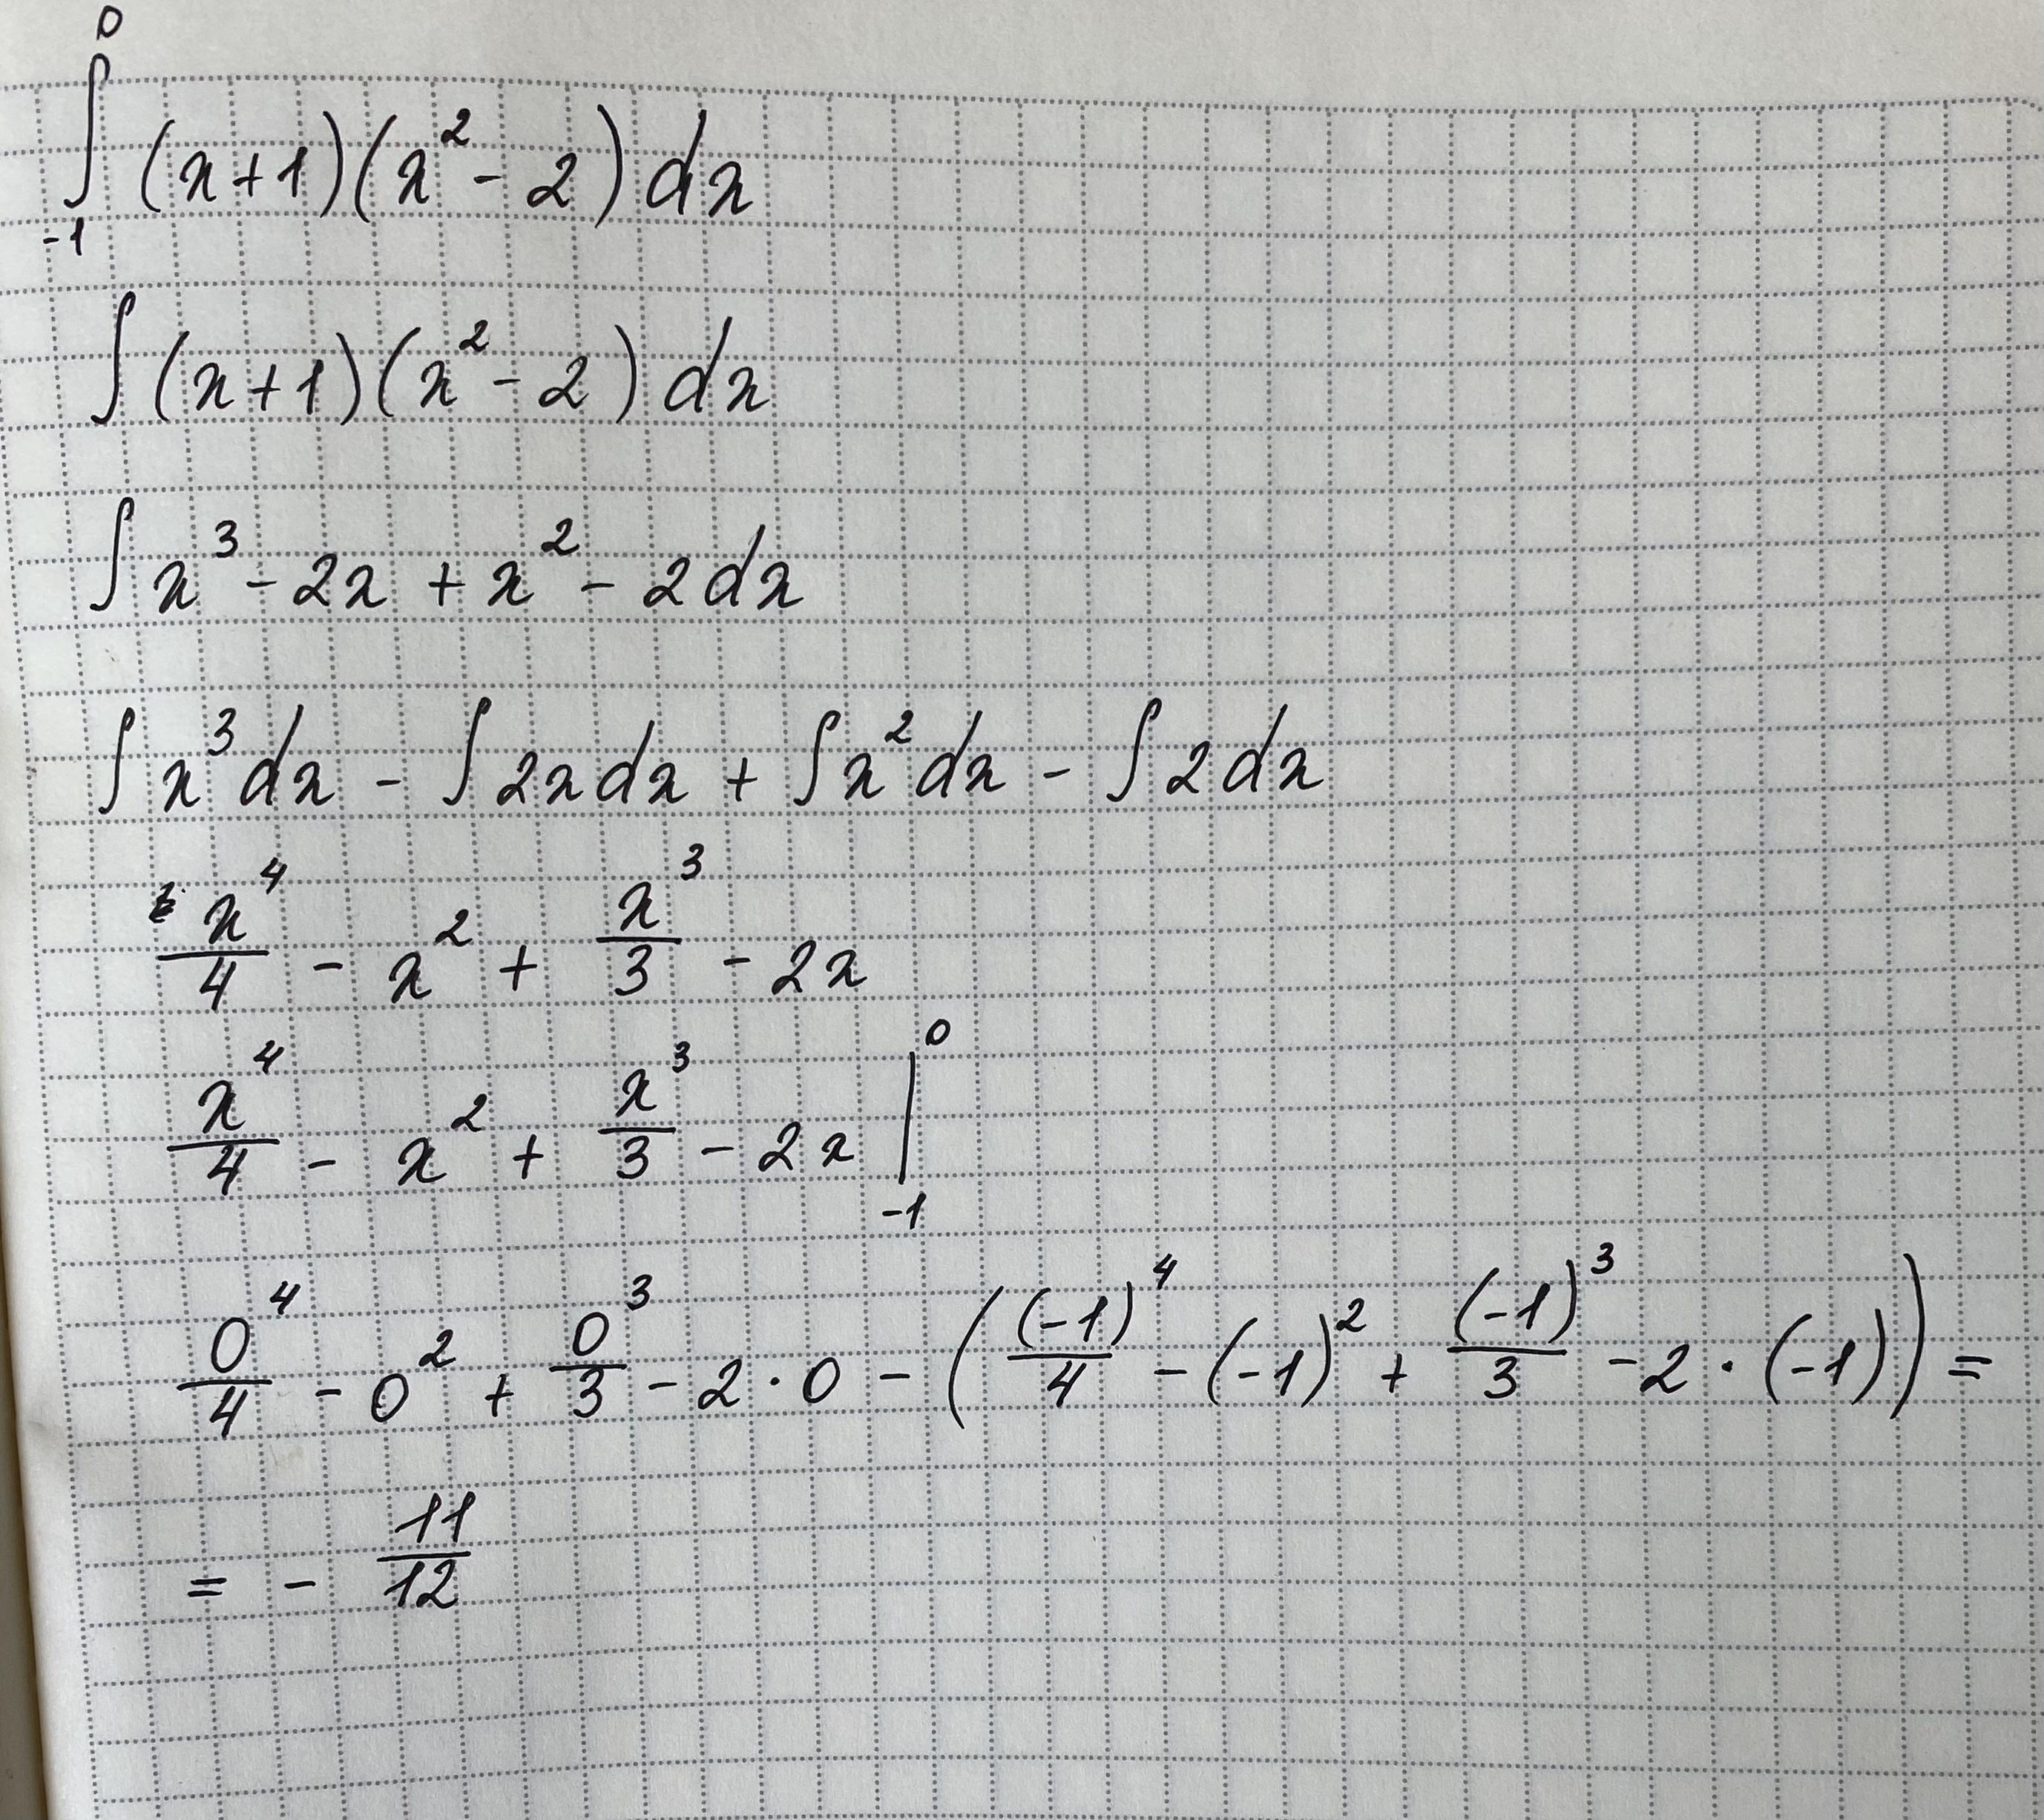 \int_{-1}^{0} (x+1)(x^2-2) dx
\int (x+1)(x^2-2) dx
\int x^3 - 2x + x^2 - 2 dx
\int x^3 dx - \int 2x dx + \int x^2 dx - \int 2 dx
\frac{x^4}{4} - x^2 + \frac{x^3}{3} - 2x
\frac{x^4}{4} - x^2 + \frac{x^3}{3} - 2x \Big|_{-1}^{0}
\frac{0^4}{4} - 0^2 + \frac{0^3}{3} - 2 \cdot 0 - \left( \frac{(-1)^4}{4} - (-1)^2 + \frac{(-1)^3}{3} - 2 \cdot (-1) \right) =
= - \frac{11}{12}